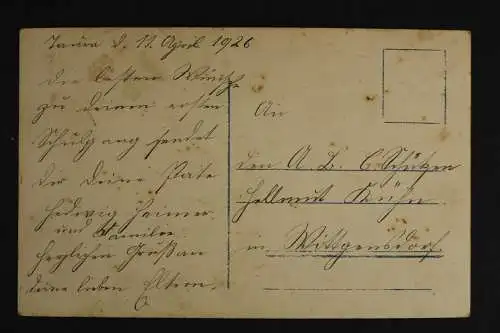 Taura d. 11. April 1926
Die besten Wünsche
zu deinem ersten
Schulgang sendet
Dir deine Pate
Hedwig Heimer
und Familie
herzlichen Gruß an
deine lieben Eltern.
An
den A. B. C Schützen
Hellmut Kühn
in Wittgensdorf